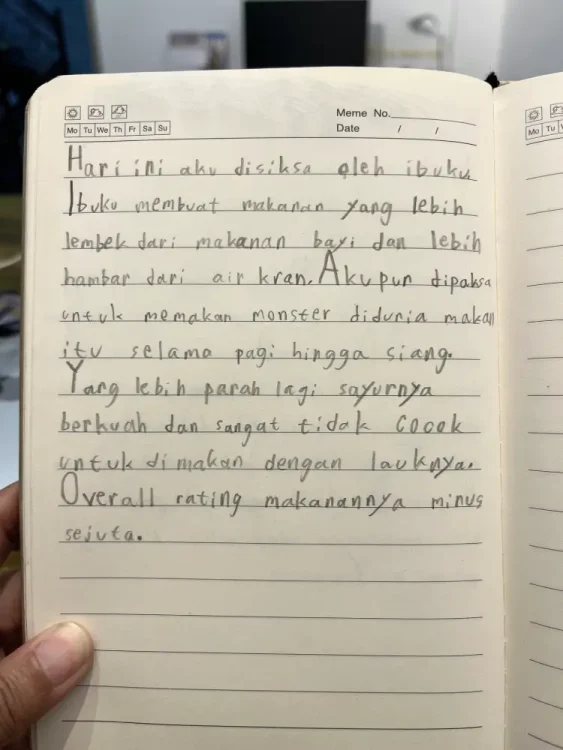 Meme No.
Mo Tu We Th Fr Sa Su
Date / /
Hari ini aku disiksa oleh ibuku.
Ibuku membuat makanan yang lebih
lembek dari makanan bayi dan lebih
hambar dari air kran. Aku pun dipaksa
untuk memakan monster didunia makan
itu selama pagi hingga siang.
Yang lebih parah lagi sayurnya
berkuah dan sangat tidak cocok
untuk di makan dengan lauknya.
Overall rating makanannya minus
sejuta.
Mo Tu